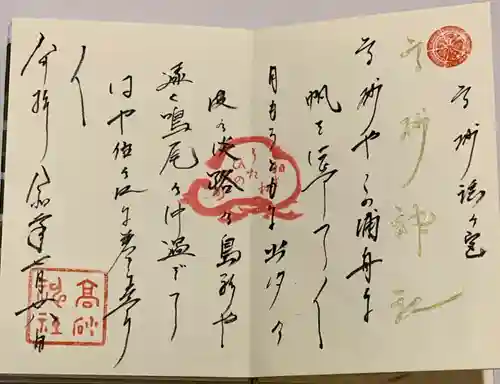 高砂謡の宮
高砂神社
高砂やこの浦舟に
帆を
月もろともに出汐の
波の淡路の島影や
遠く鳴尾の沖過ぎて
はや住の江に着きにけり
奉拝
高砂
神社